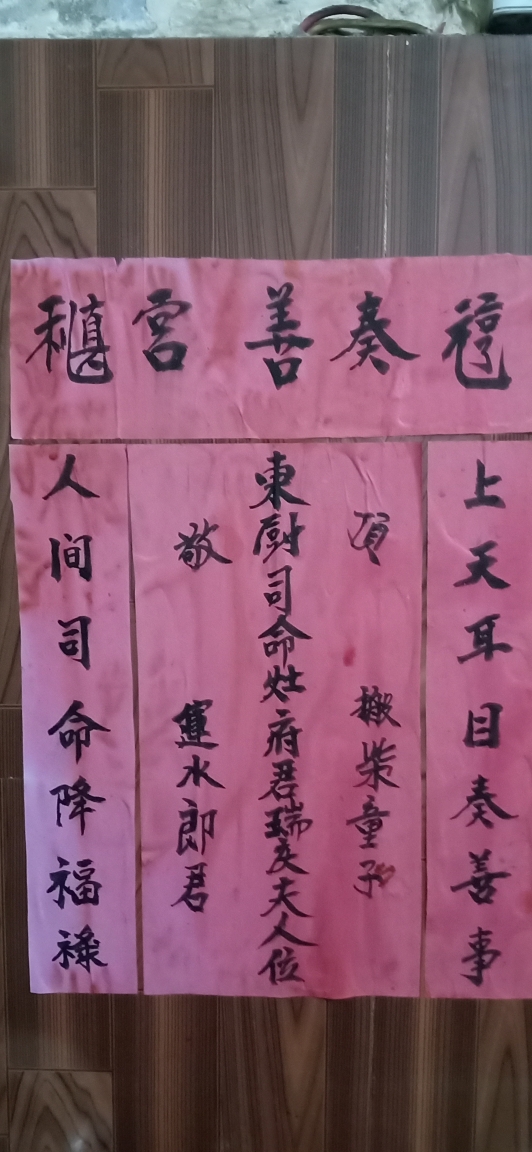 奏善宮
上天耳目奏善事
頂
搬柴童子
東厨司命灶府君瑞夫人位
敬
運水郎君
人间司命降福禄